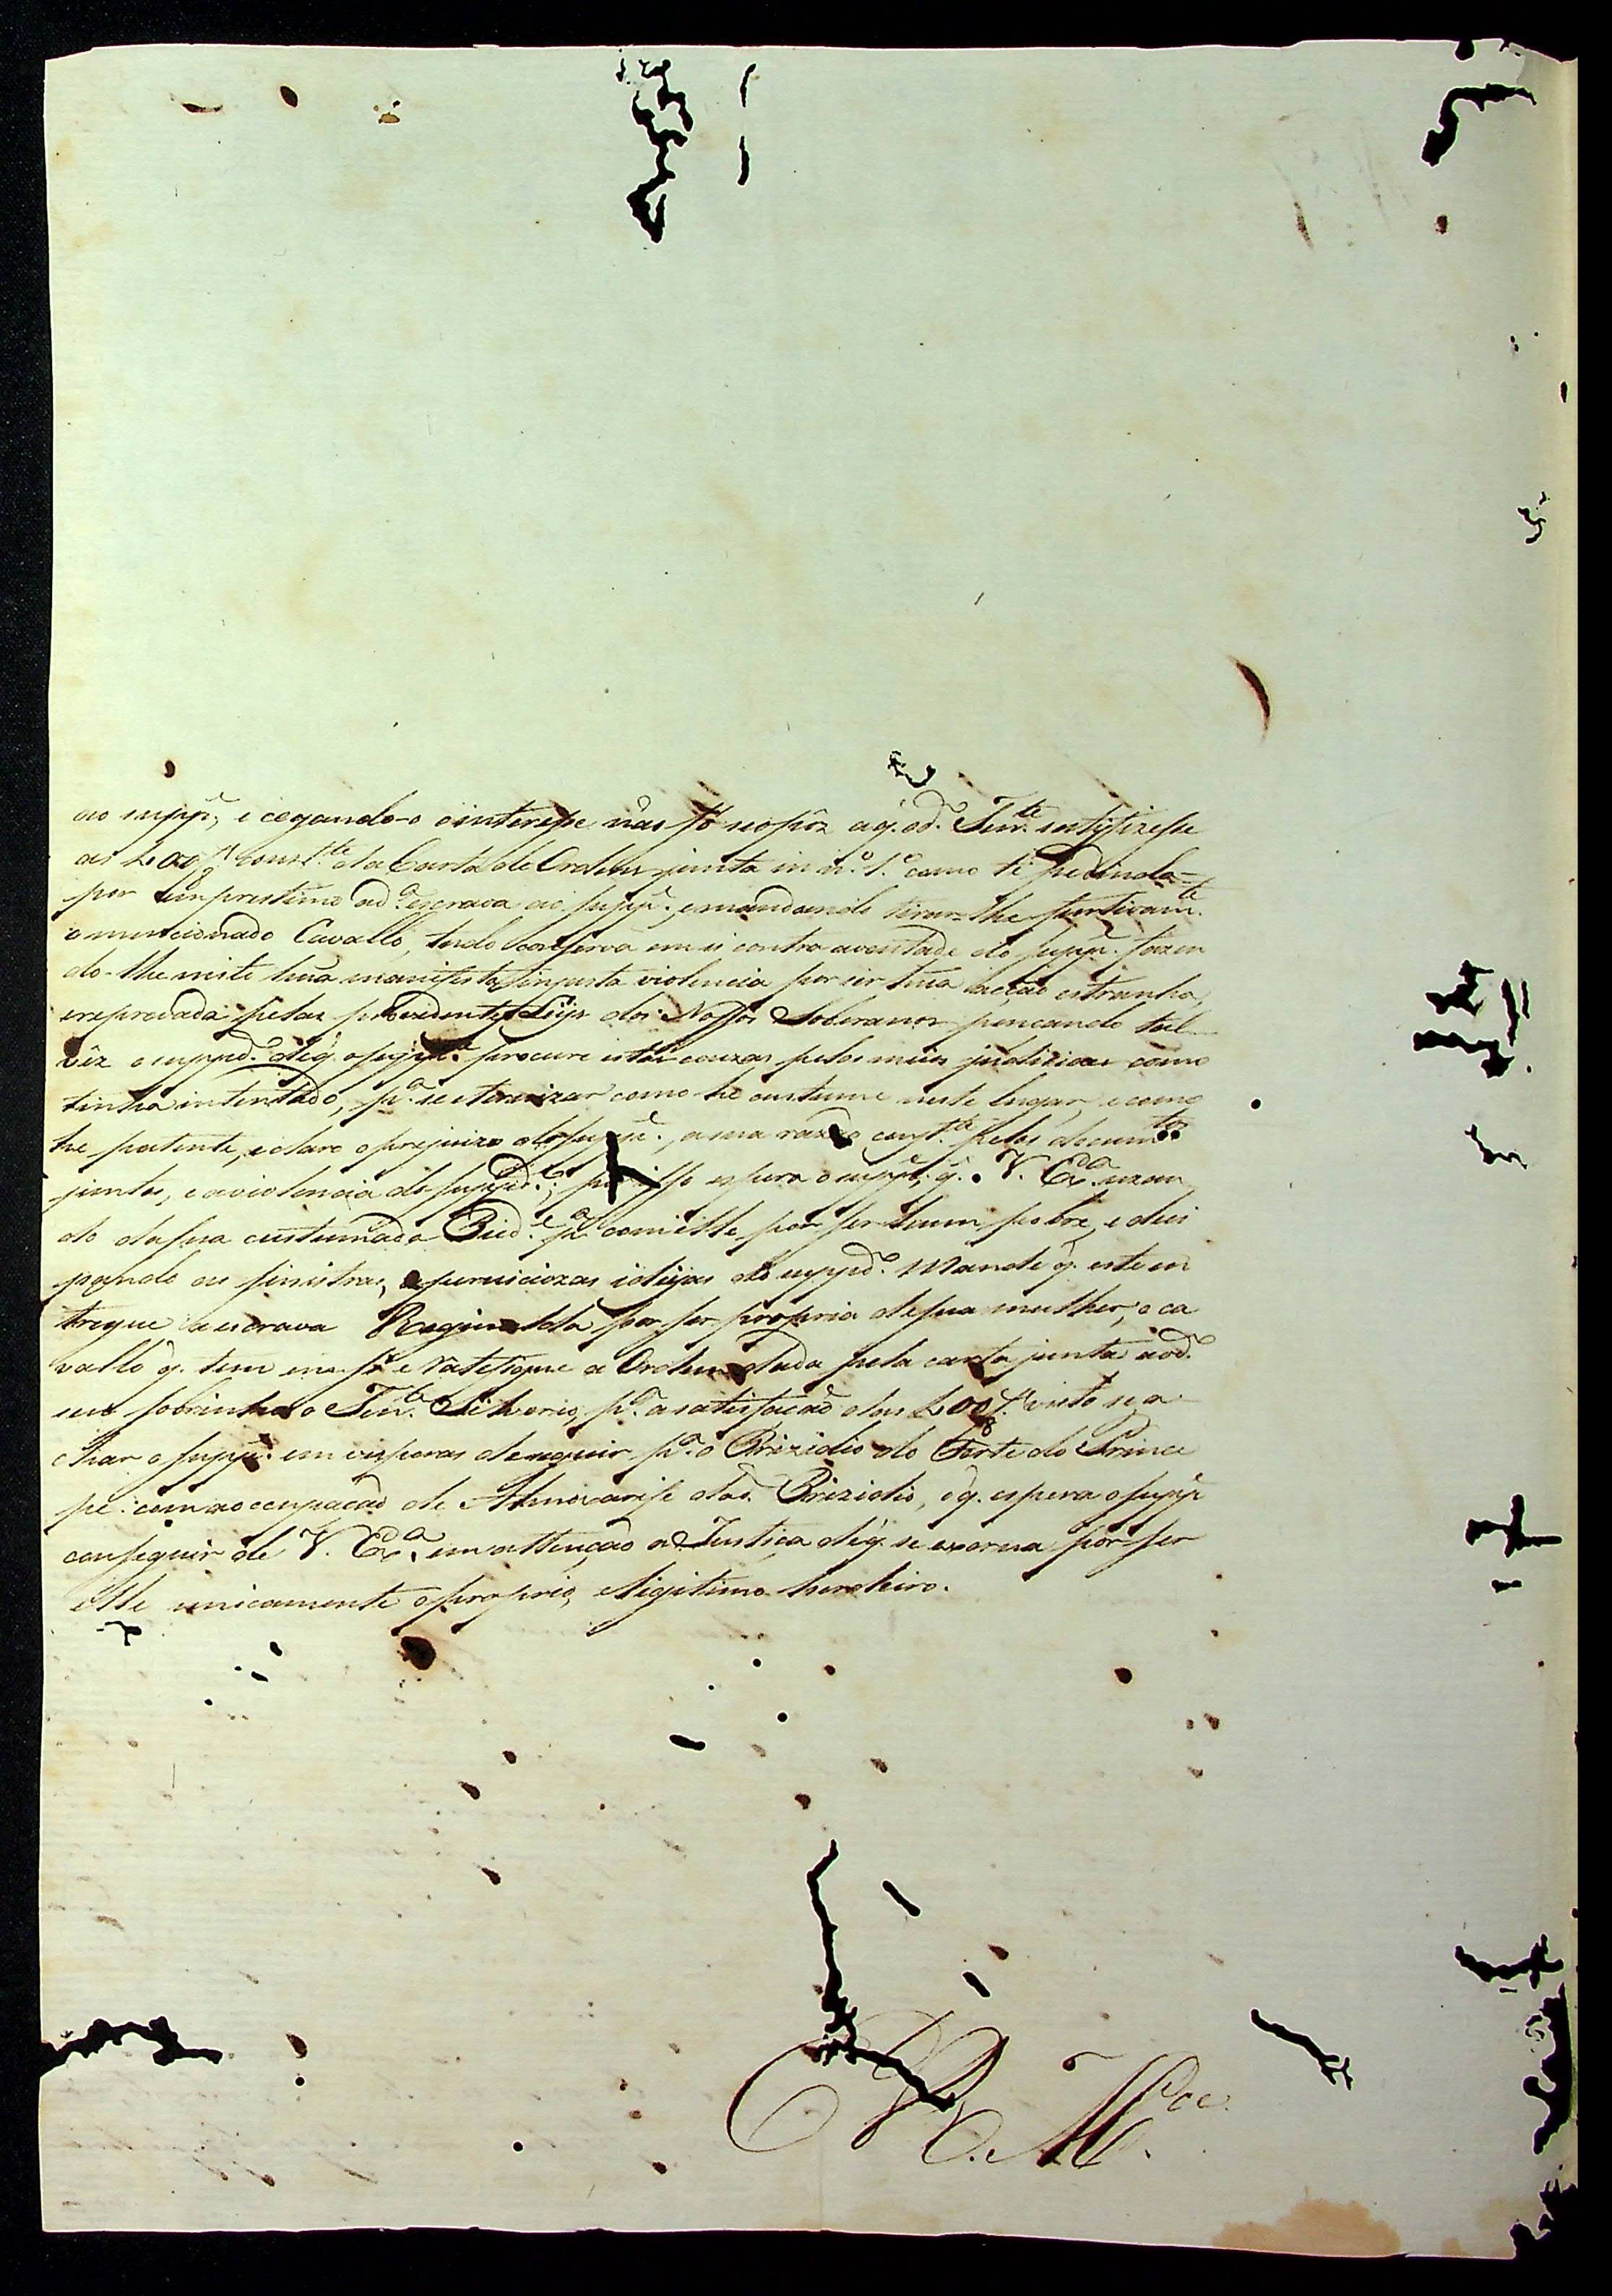 ao supp.e, e cegando-o o interesse não só se opôz a q. o d.o Ten.te satisfizesse
as 200/8.as const.te da Carta de Ordem junta in n.o 1.o como té pedindo
por emprestimo a d.a escrava ao supp.e, e mandando tirar-lhe furtivam.te
o muncionado Cavallo, tudo conserva em si contra a vontade do supp.e fazen
do-lhe niste huma manifesta, injusta violencia por ser huma acção estranha,
e reprovada pelas providentes Leys dos Nossos Soberanos pencando tal
vêz o suppd.o de q. o supp.e procure estas couzas pelos meios judiciaes como
tinha intentado, p.a se eternizar como he custume neste lugar, e como
he patente, e claro o prejuizo do supp.e, a sua razão const.te pelos docum.tos
juntos, e a violencia do suppd.o; por isso espera o supp.e q. V. Ex.a uzan
do da sua custumada Pied.e p.a com elle por ser hum pobre, e dici
pando as sinistras, e perniciozas idéyas do suppd.o Mande q. este en
tregue a escrava Reginalda por ser propria de sua mulher, o ca
vallo q. tem em si e ratefique a Ordem dada pela carta junta ao d.o
seu sobrinho o Ten.te Silverio, p.a a satisfação das 200/8.as visto se a
char o supp.e em vesperas de seguir p.a o Prezidio do Forte do Princi
pe com a occupação de Almoxarife do d.o Prezidio, o q. espera o supp.e
conseguir de V. Ex.a em attenção a Justiça de q. se exorna por ser
elle unicamente o proprio, e legitimo herdeiro.
E. R. M.ce